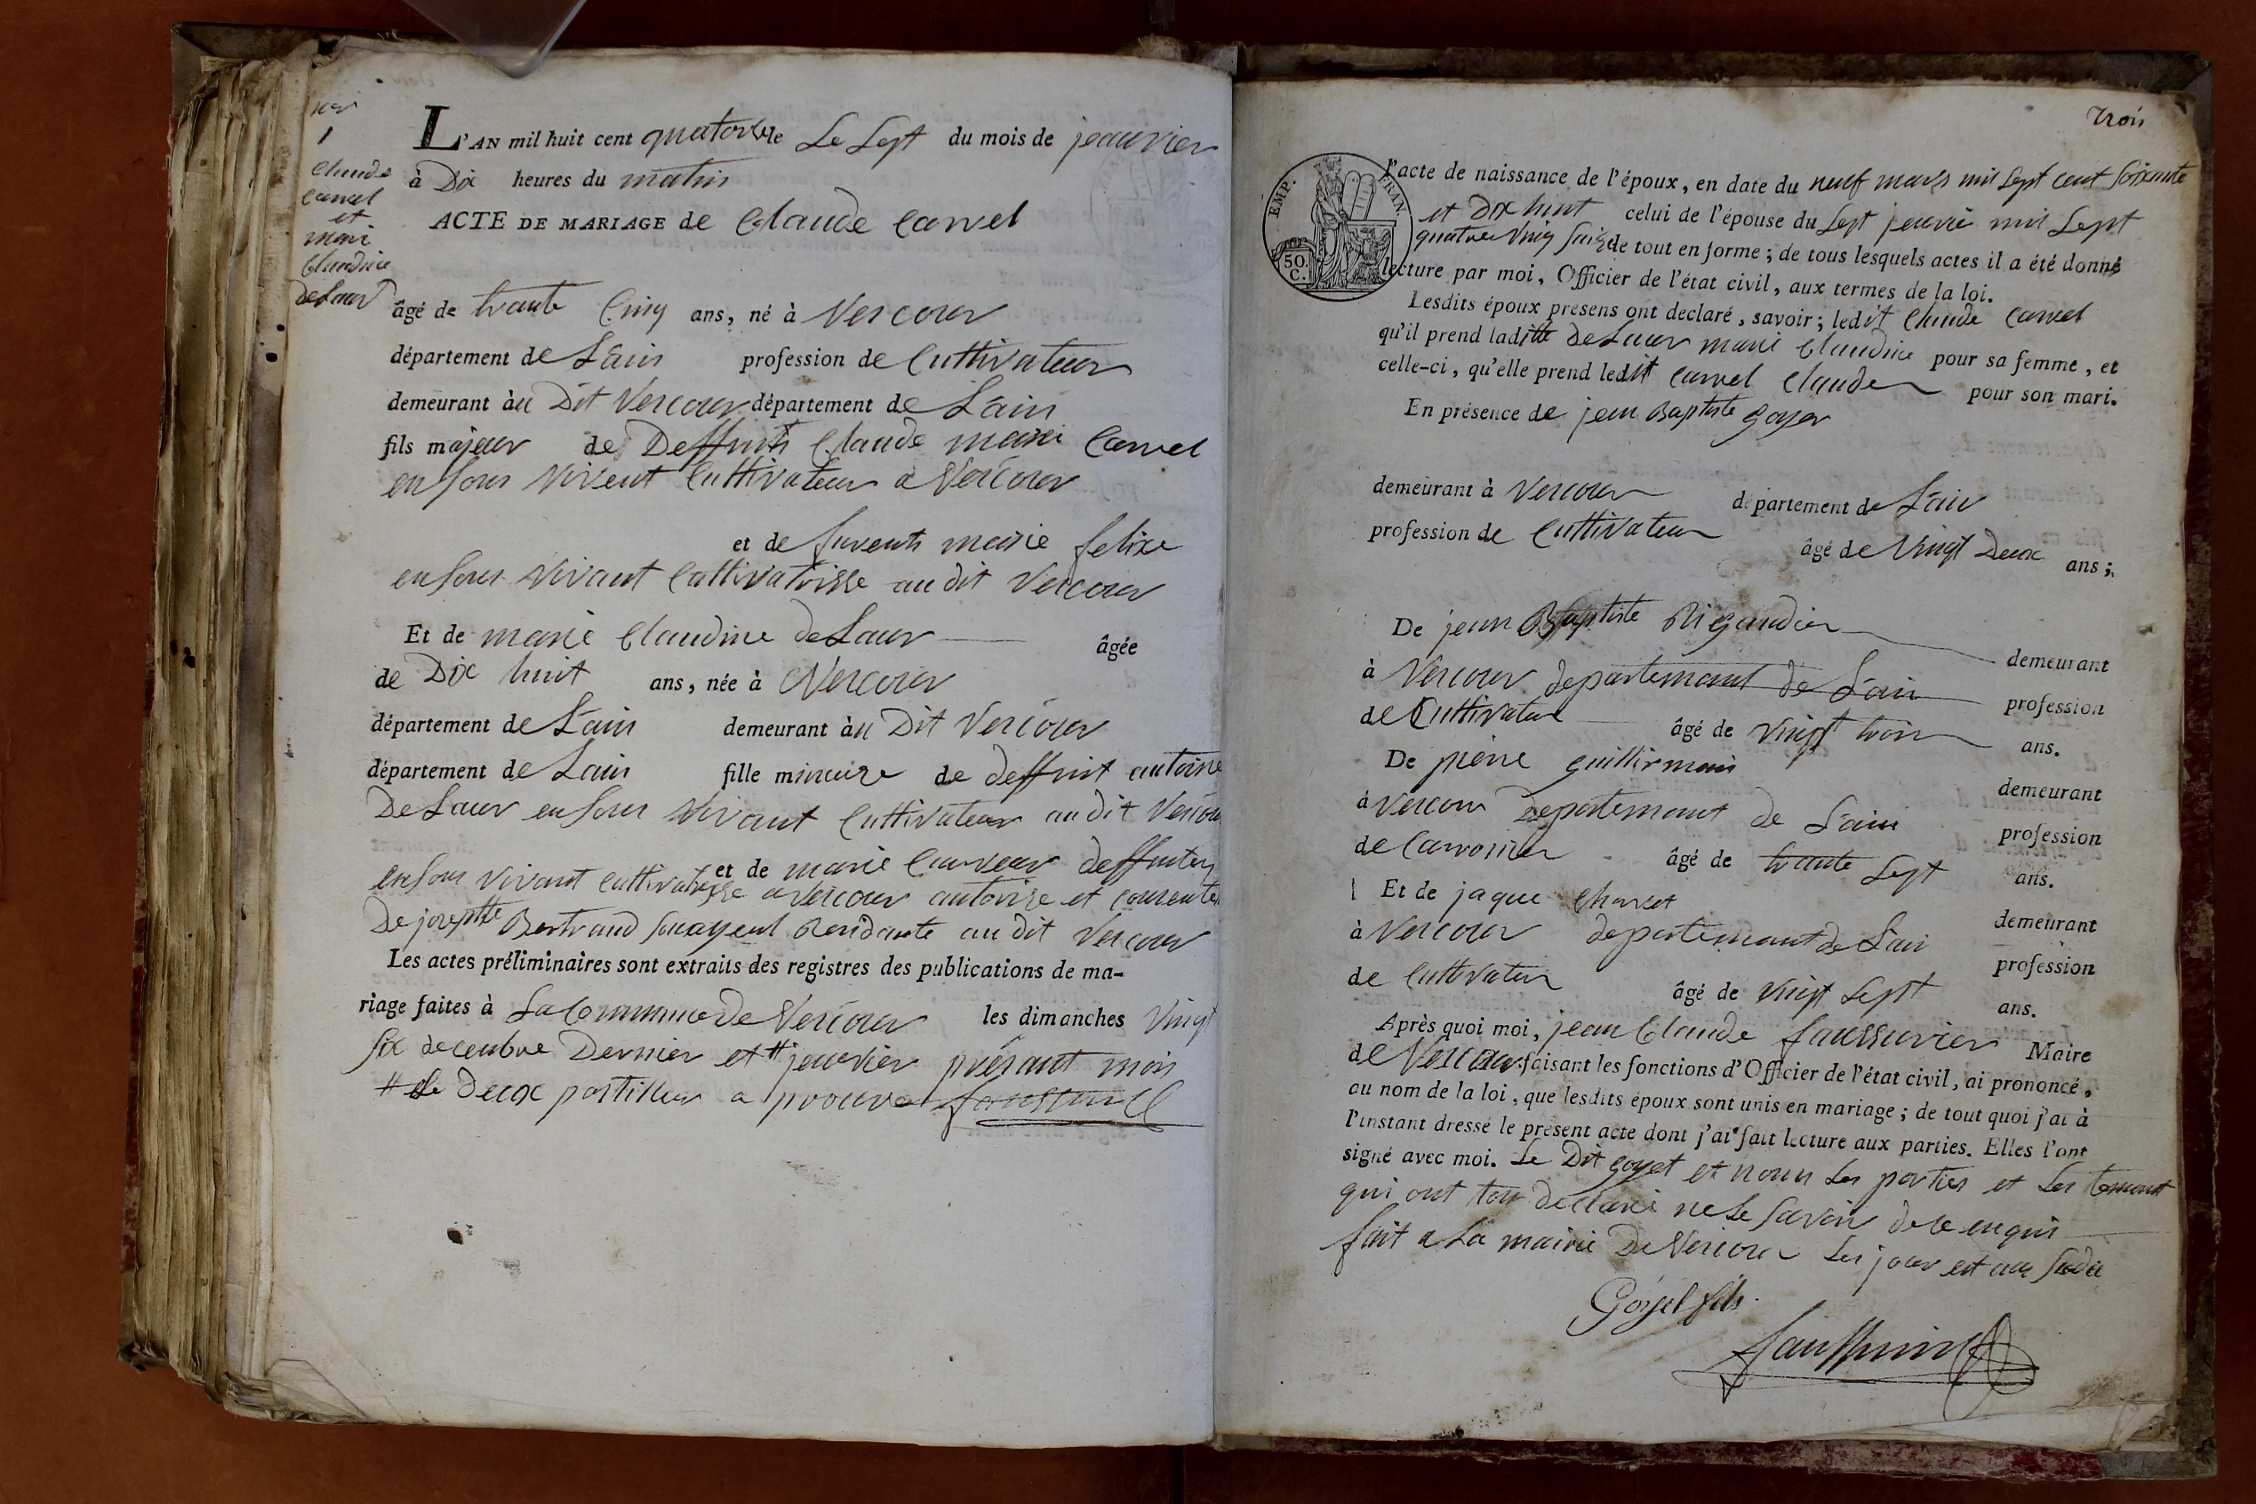 1
Claude
Carrel
et
mari
Claudine
Delaur
L'AN mil huit cent quatorze le Le Sept du mois de jeanvier
à Dix heures du matin
ACTE DE MARIAGE de Claude Carrel
âgé de trante Cinq ans, né à Vercour
département de L'ain profession de Cultivateur
demeurant àu Dit Vercour département de L'ain
fils majeur de Deffunts Claude marie Carrel
en sont vivent Cultivateur a Vercour
et de marie felixe
en sont vivant Cultivatrisse au dit Vercour
Et de marie Claudine deLaur âgée
de Dix huit ans, née à Vercour
département de L'ain demeurant àu Dit Vercour
département de L'ain fille mineure de deffunt antoine
DeLaur en sont vivant Cultivateur au dit Vercour
et de marie deffuntes
en sont vivant cultivatrisse a Vercour autorise et consente
De josephte Bertrand Residante au dit Vercour
Les actes préliminaires sont extraits des registres des publications de ma-
riage faites à La Commune de Vercour les dimanches vingt
six decenbre Dernier et # jenvier présant mois
# le deux a prouve
trois
EMP. FRAN.
50.
C.
l'acte de naissance de l'époux, en date du neuf mars mil sept cent soixante
et Dix huit celui de l'épouse du sept jenvié mil sept
quatre ving saize tout en forme; de tous lesquels actes il a été donné
lecture par moi, Officier de l'état civil, aux termes de la loi.
Lesdits époux présens ont declaré, savoir; ledit Claude Carrel
qu'il prend laditte deLaur marie Claudine pour sa femme, et
celle-ci, qu'elle prend ledit Carrel Claude pour son mari.
En présence de jean Baptiste goyet
demeurant à Vercour département de L'ain
profession de Cultivateur âgé de vingt Deux ans;
De jean Baptiste Rigaudier demeurant
à Vercour departemant de L'ain profession
de Cultivateur âgé de vingt trois ans.
De pierre guillermain demeurant
à Vercour Departemant de L'ain profession
de âgé de trante sept ans.
Et de jaque Charvet demeurant
à Vercour departemant de L'ain profession
de Cultivateur âgé de vingt sept ans.
Après quoi moi, jean Claude Maire
de Vercour faisant les fonctions d'Officier de l'état civil, ai prononcé,
au nom de la loi, que lesdits époux sont unis en mariage; de tout quoi j'ai à
l'instant dressé le présent acte dont j'ai fait lecture aux parties. Elles l'ont
signé avec moi. Le Dit goyet et nonn les parties et les temoins
qui ont tou déclaré ne le savoir de ce enquis
fait a La mairie De Vercour les jour et an sudit